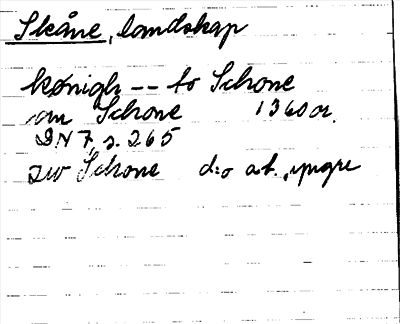 Skåne, landskap
kønigh -- to Schone
om Schone 1360 or.
DN 7, s. 265
zw Schone d:o at. yngre